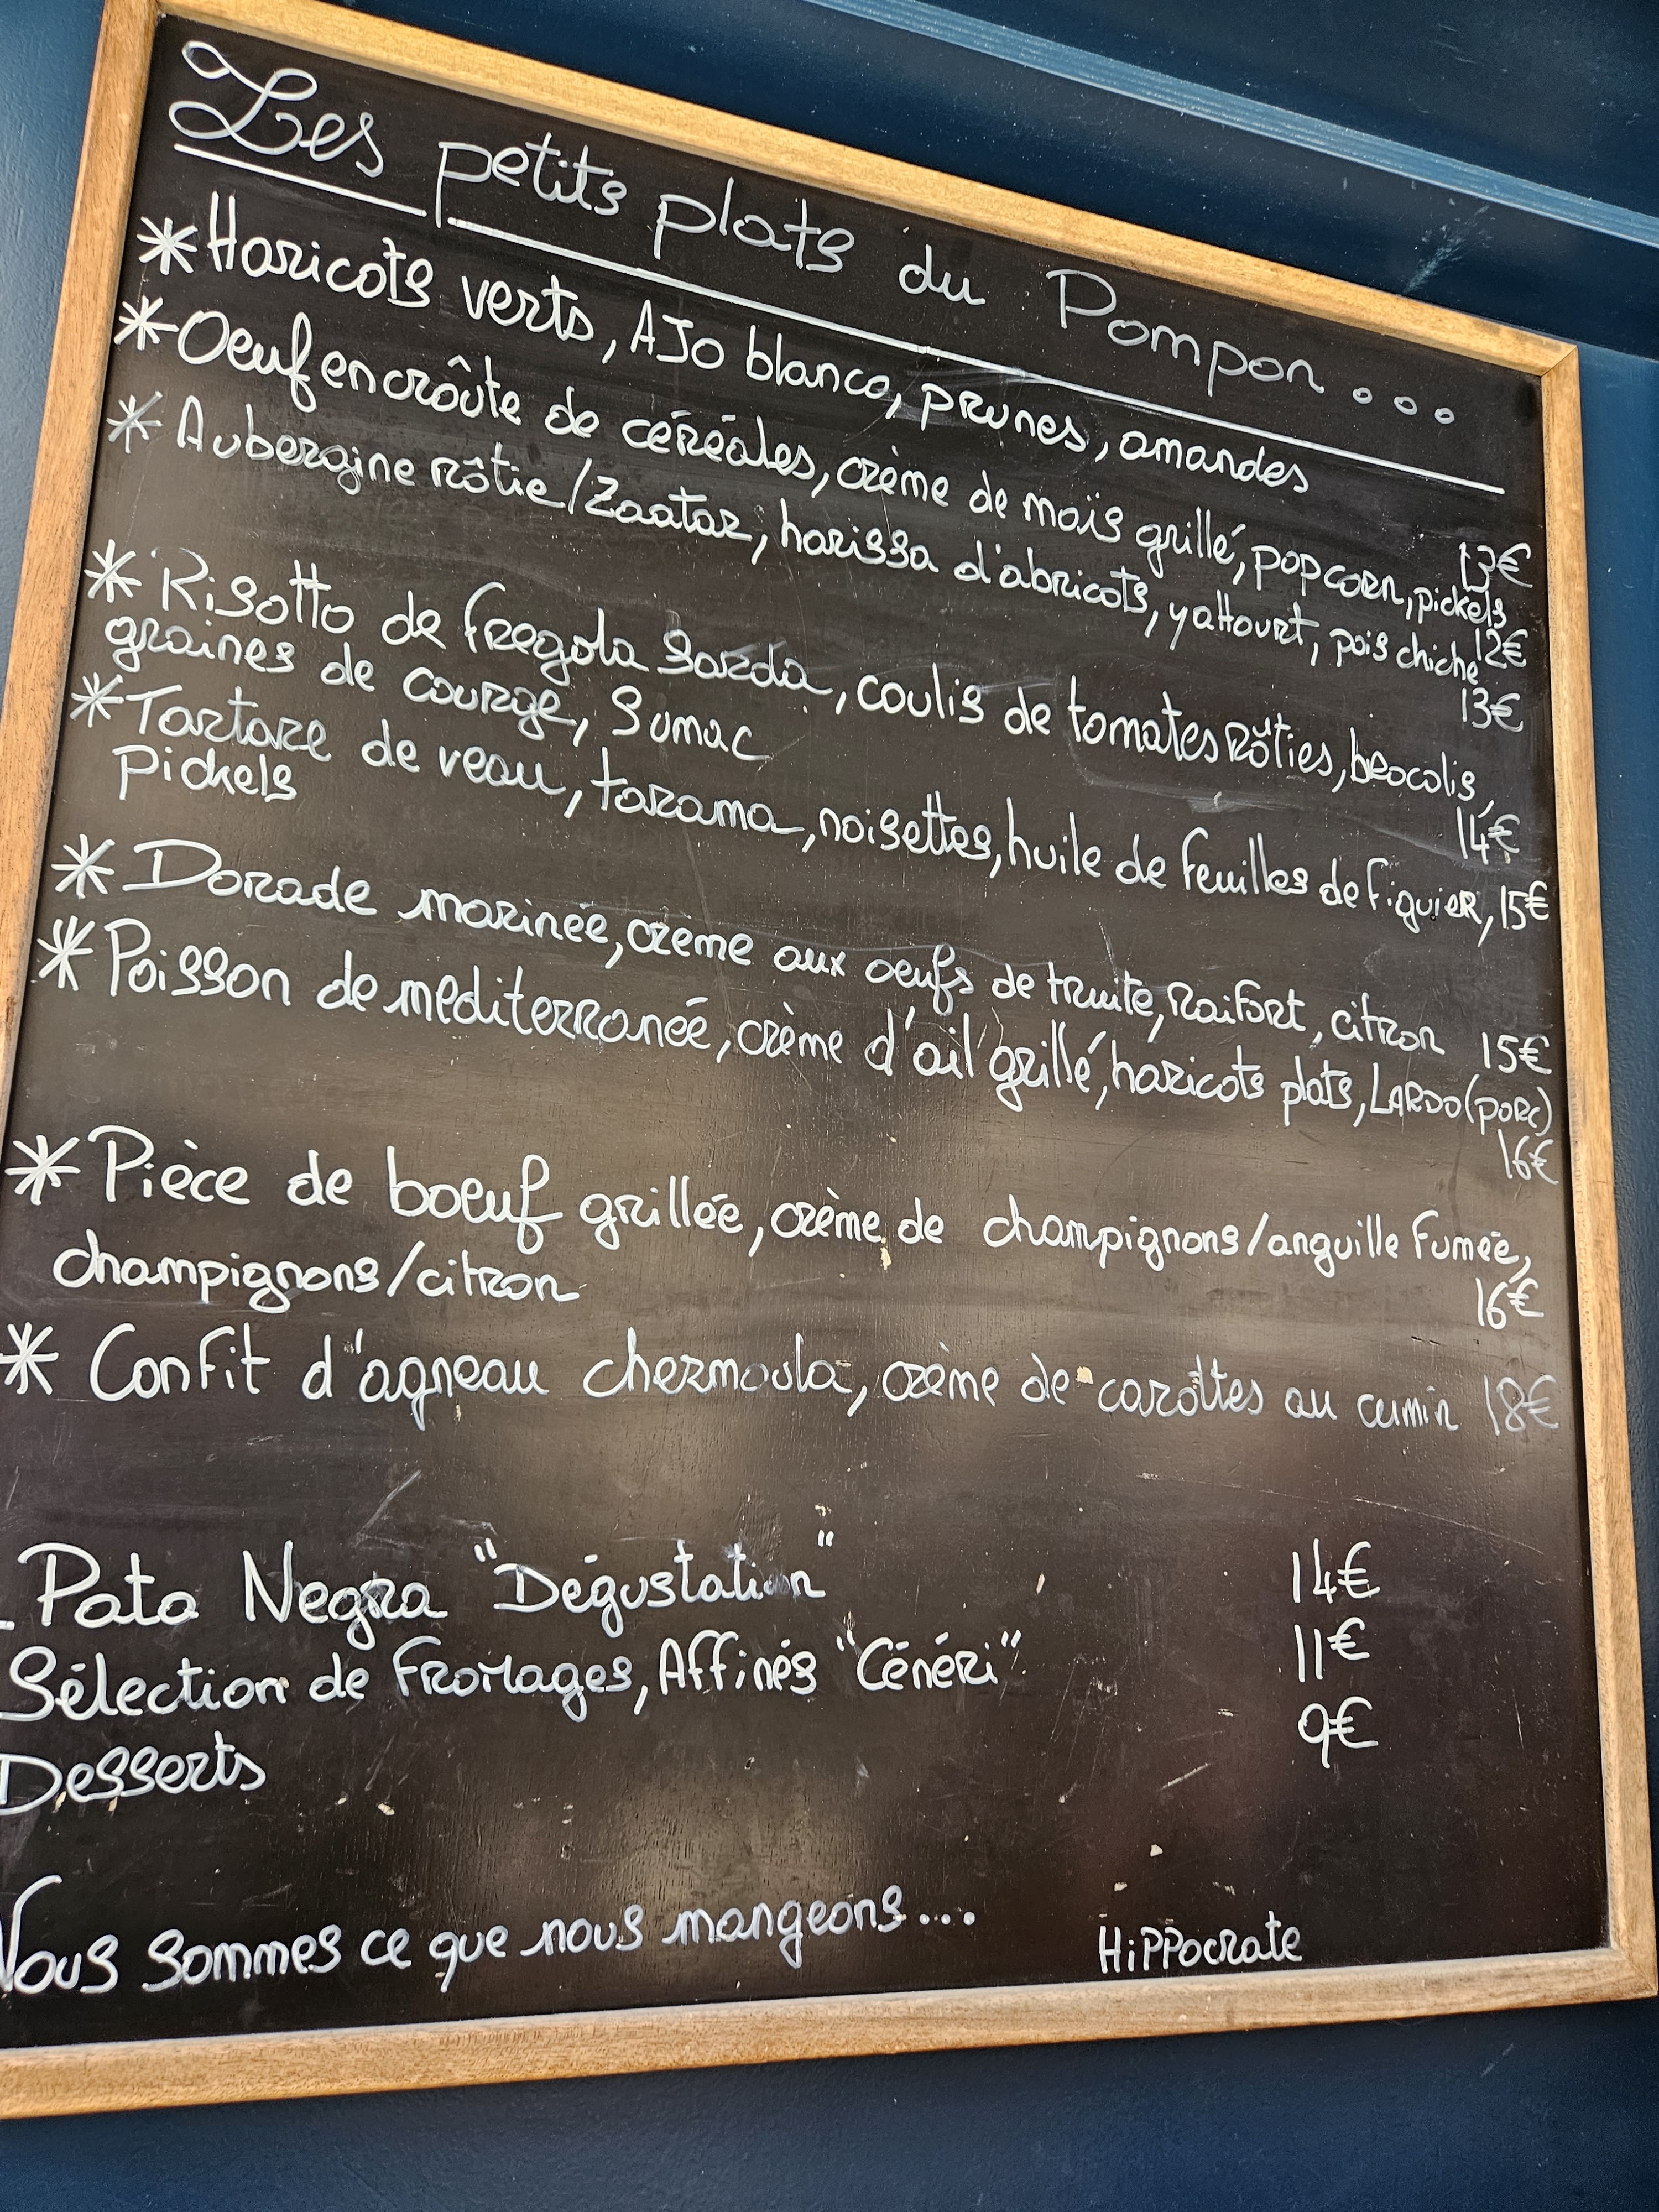 Les petits plats du Pompon...
* Haricots verts, AJO blanco, prunes, amandes 13€
* Oeuf en croûte de céréales, crème de maïs grillé, popcorn, pickels 12€
* Aubergine rôtie/Zaatar, harissa d'abricots, yattourt, pois chiche 13€
* Risotto de fregola Sarda, coulis de tomates rôties, brocolis,
graines de courge, Sumac 14€
* Tartare de veau, tarama, noisettes, huile de feuilles de figuier, 15€
Pickels
* Dorade marinée, creme aux oeufs de truite, Raifort, citron 15€
* Poisson de mediterranée, crème d'ail grillé, haricots plats, LARDO (PORC)
16€
* Pièce de boeuf grillée, crème de champignons/anguille fumée,
champignons/citron 16€
* Confit d'agneau chermoula, crème de carottes au cumin 18€
- Pata Negra "Dégustation" 14€
Sélection de Fromages, Affinés "Cénéri" 11€
Desserts 9€
Nous sommes ce que nous mangeons... HiPPocrate